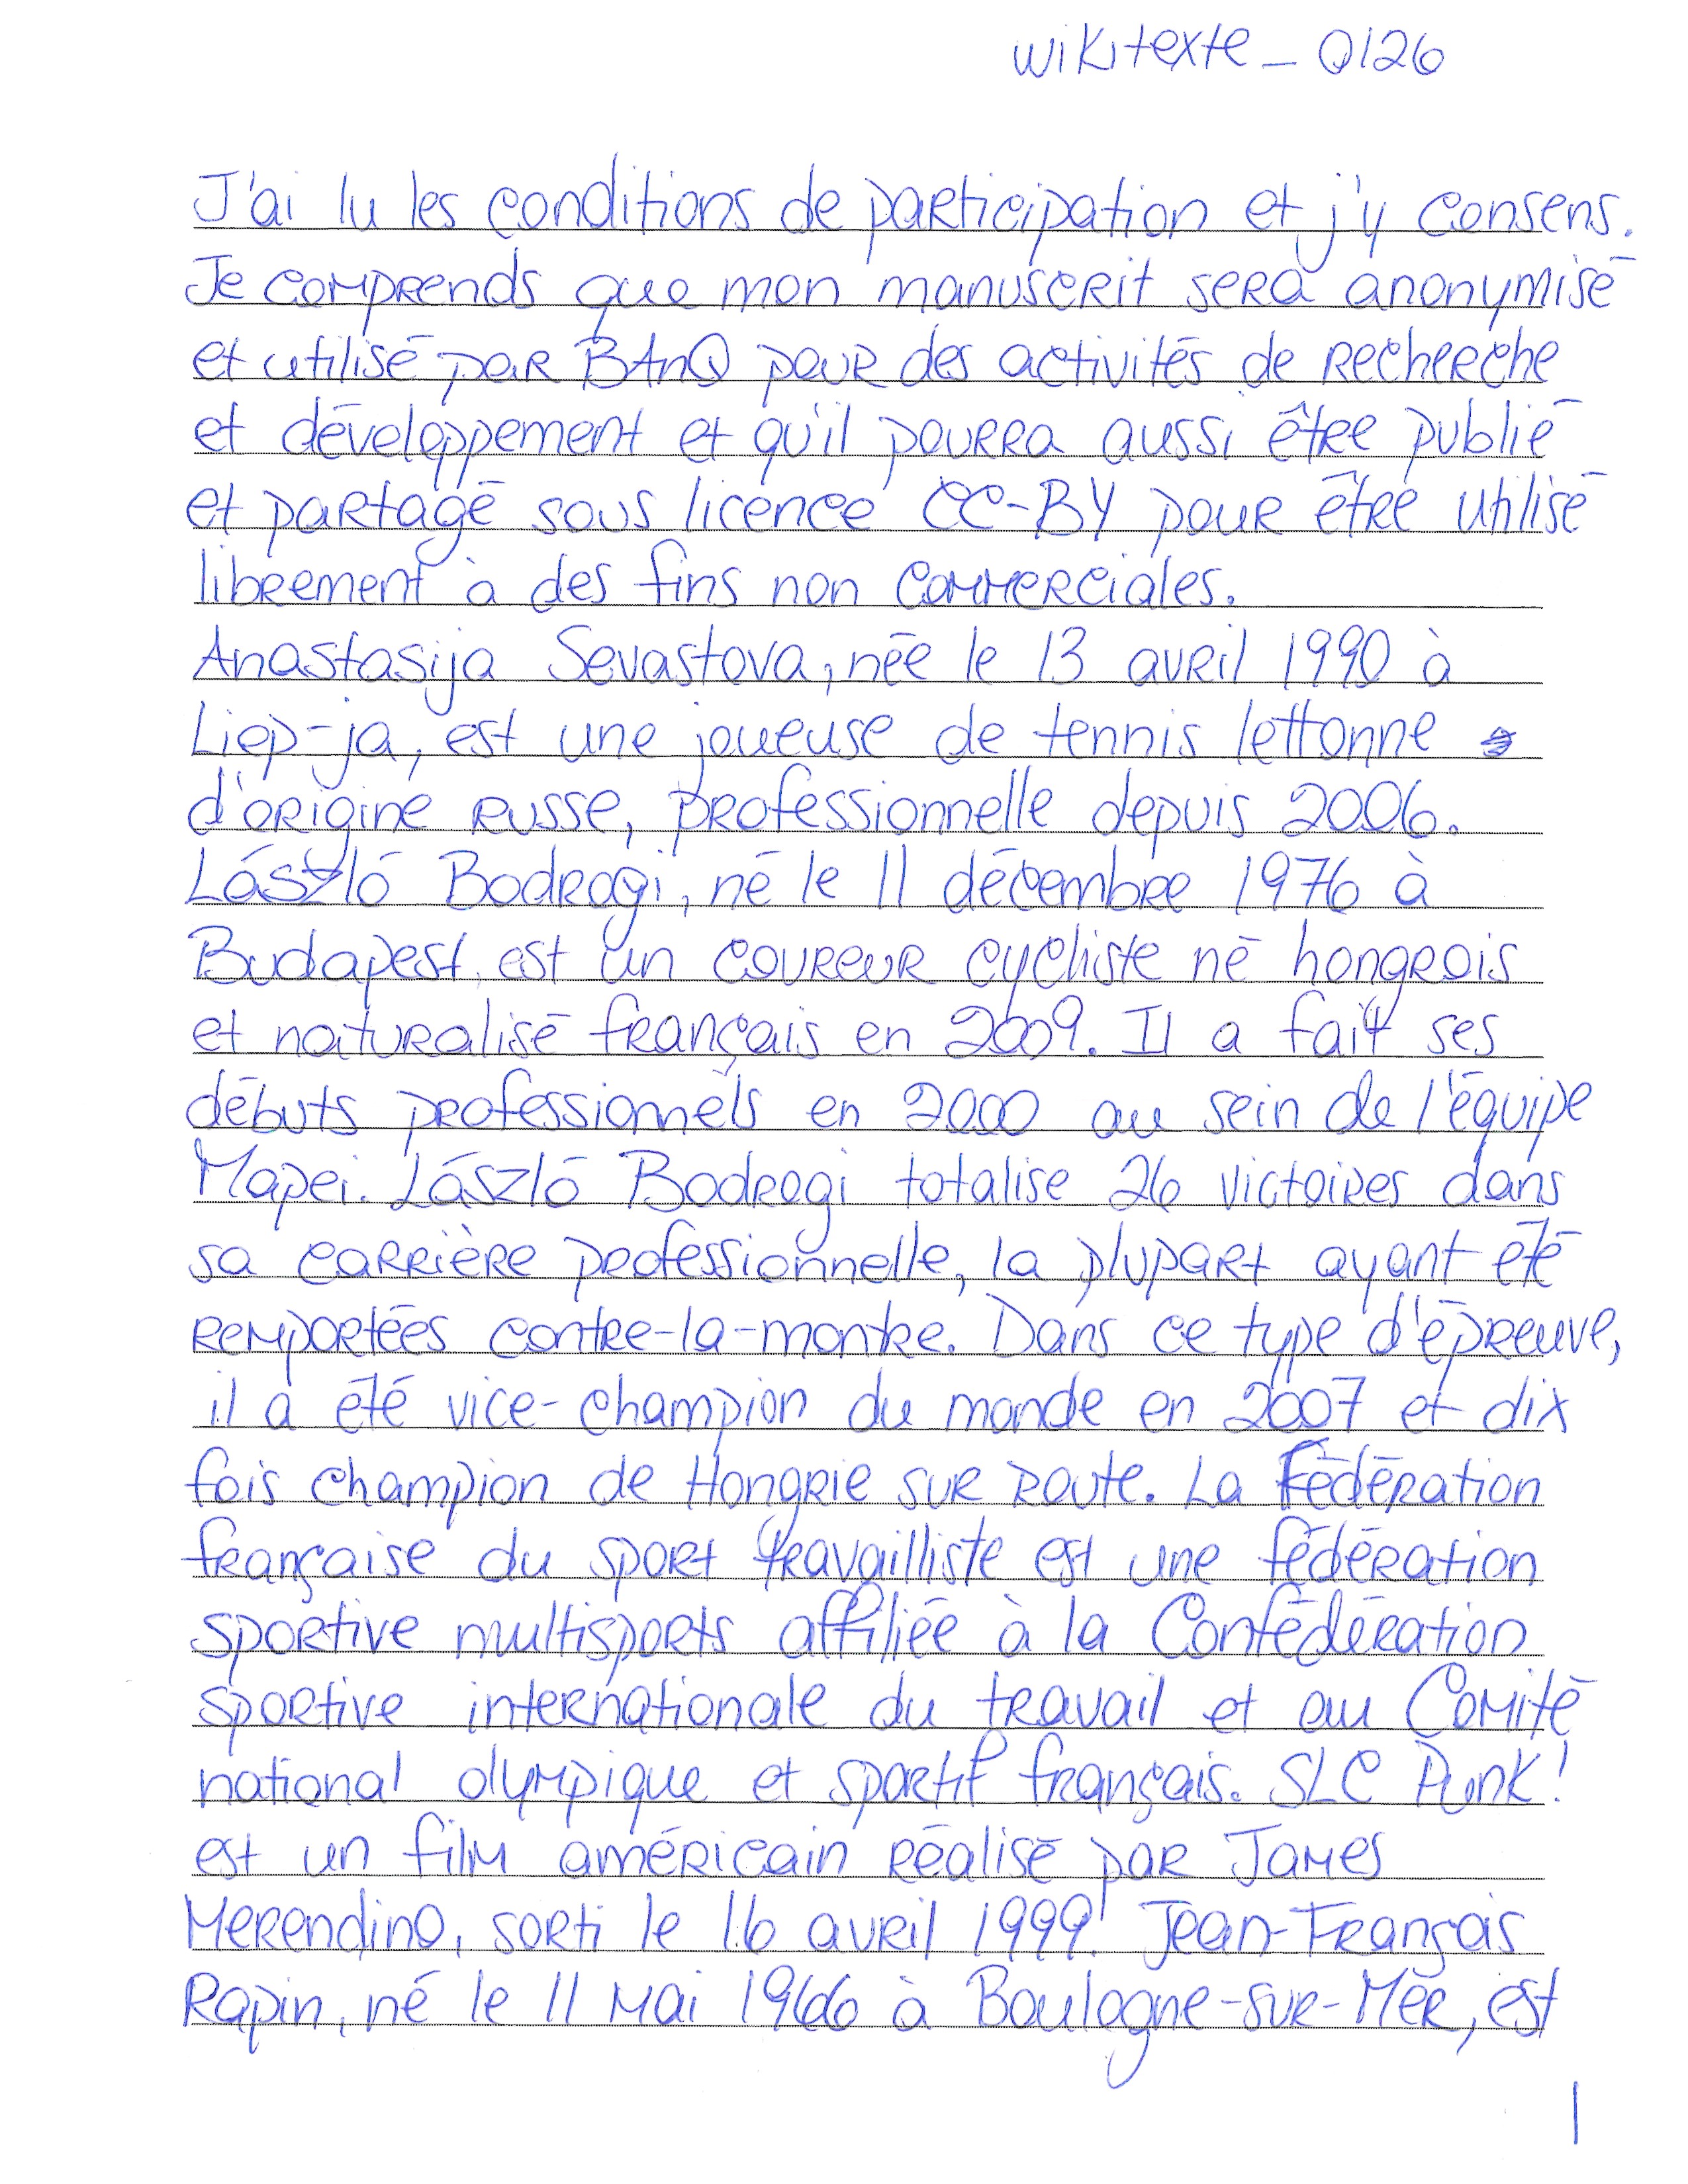 wikitexte_0126
J'ai lu les conditions de participation et j'y consens.
Je comprends que mon manuscrit sera anonymisé
et utilisé par BAnQ pour des activités de recherche
et développement et qu'il pourra aussi être publié
et partagé sous licence CC-BY pour être utilisé
librement à des fins non commerciales.
Anastasija Sevastova, née le 13 avril 1990 à
Liep-ja, est une joueuse de tennis lettonne
d'origine russe, professionnelle depuis 2006.
László Bodrogi, né le 11 décembre 1976 à
Budapest, est un coureur cycliste né hongrois
et naturalisé français en 2009. Il a fait ses
débuts professionnels en 2000 au sein de l'équipe
Mapei. László Bodrogi totalise 26 victoires dans
sa carrière professionnelle, la plupart ayant été
remportées contre-la-montre. Dans ce type d'épreuve,
il a été vice-champion du monde en 2007 et dix
fois champion de Hongrie sur route. La Fédération
française du sport travailliste est une fédération
sportive multisports affiliée à la Confédération
sportive internationale du travail et au Comité
national olympique et sportif français. SLC Punk!
est un film américain réalisé par James
Merendino, sorti le 16 avril 1999. Jean-François
Rapin, né le 11 mai 1966 à Boulogne-sur-Mer, est
1